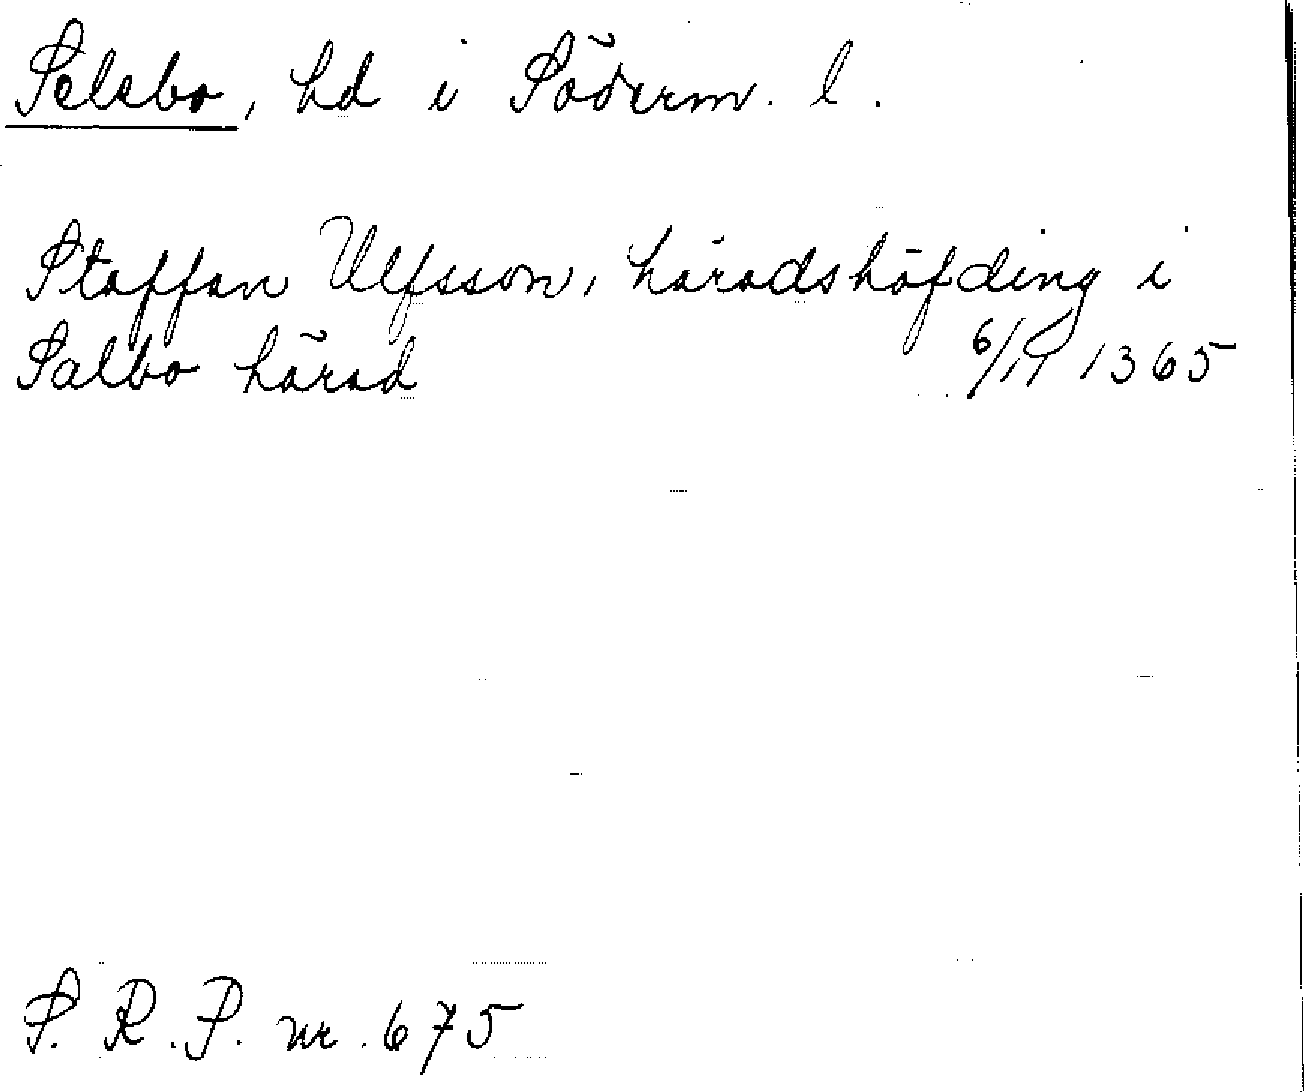 Selebo, hd i Söderm. l.
Staffan Ulfsson, häradshöfding i
Salbo härad 6/11 1365
S. R. P. nr. 675